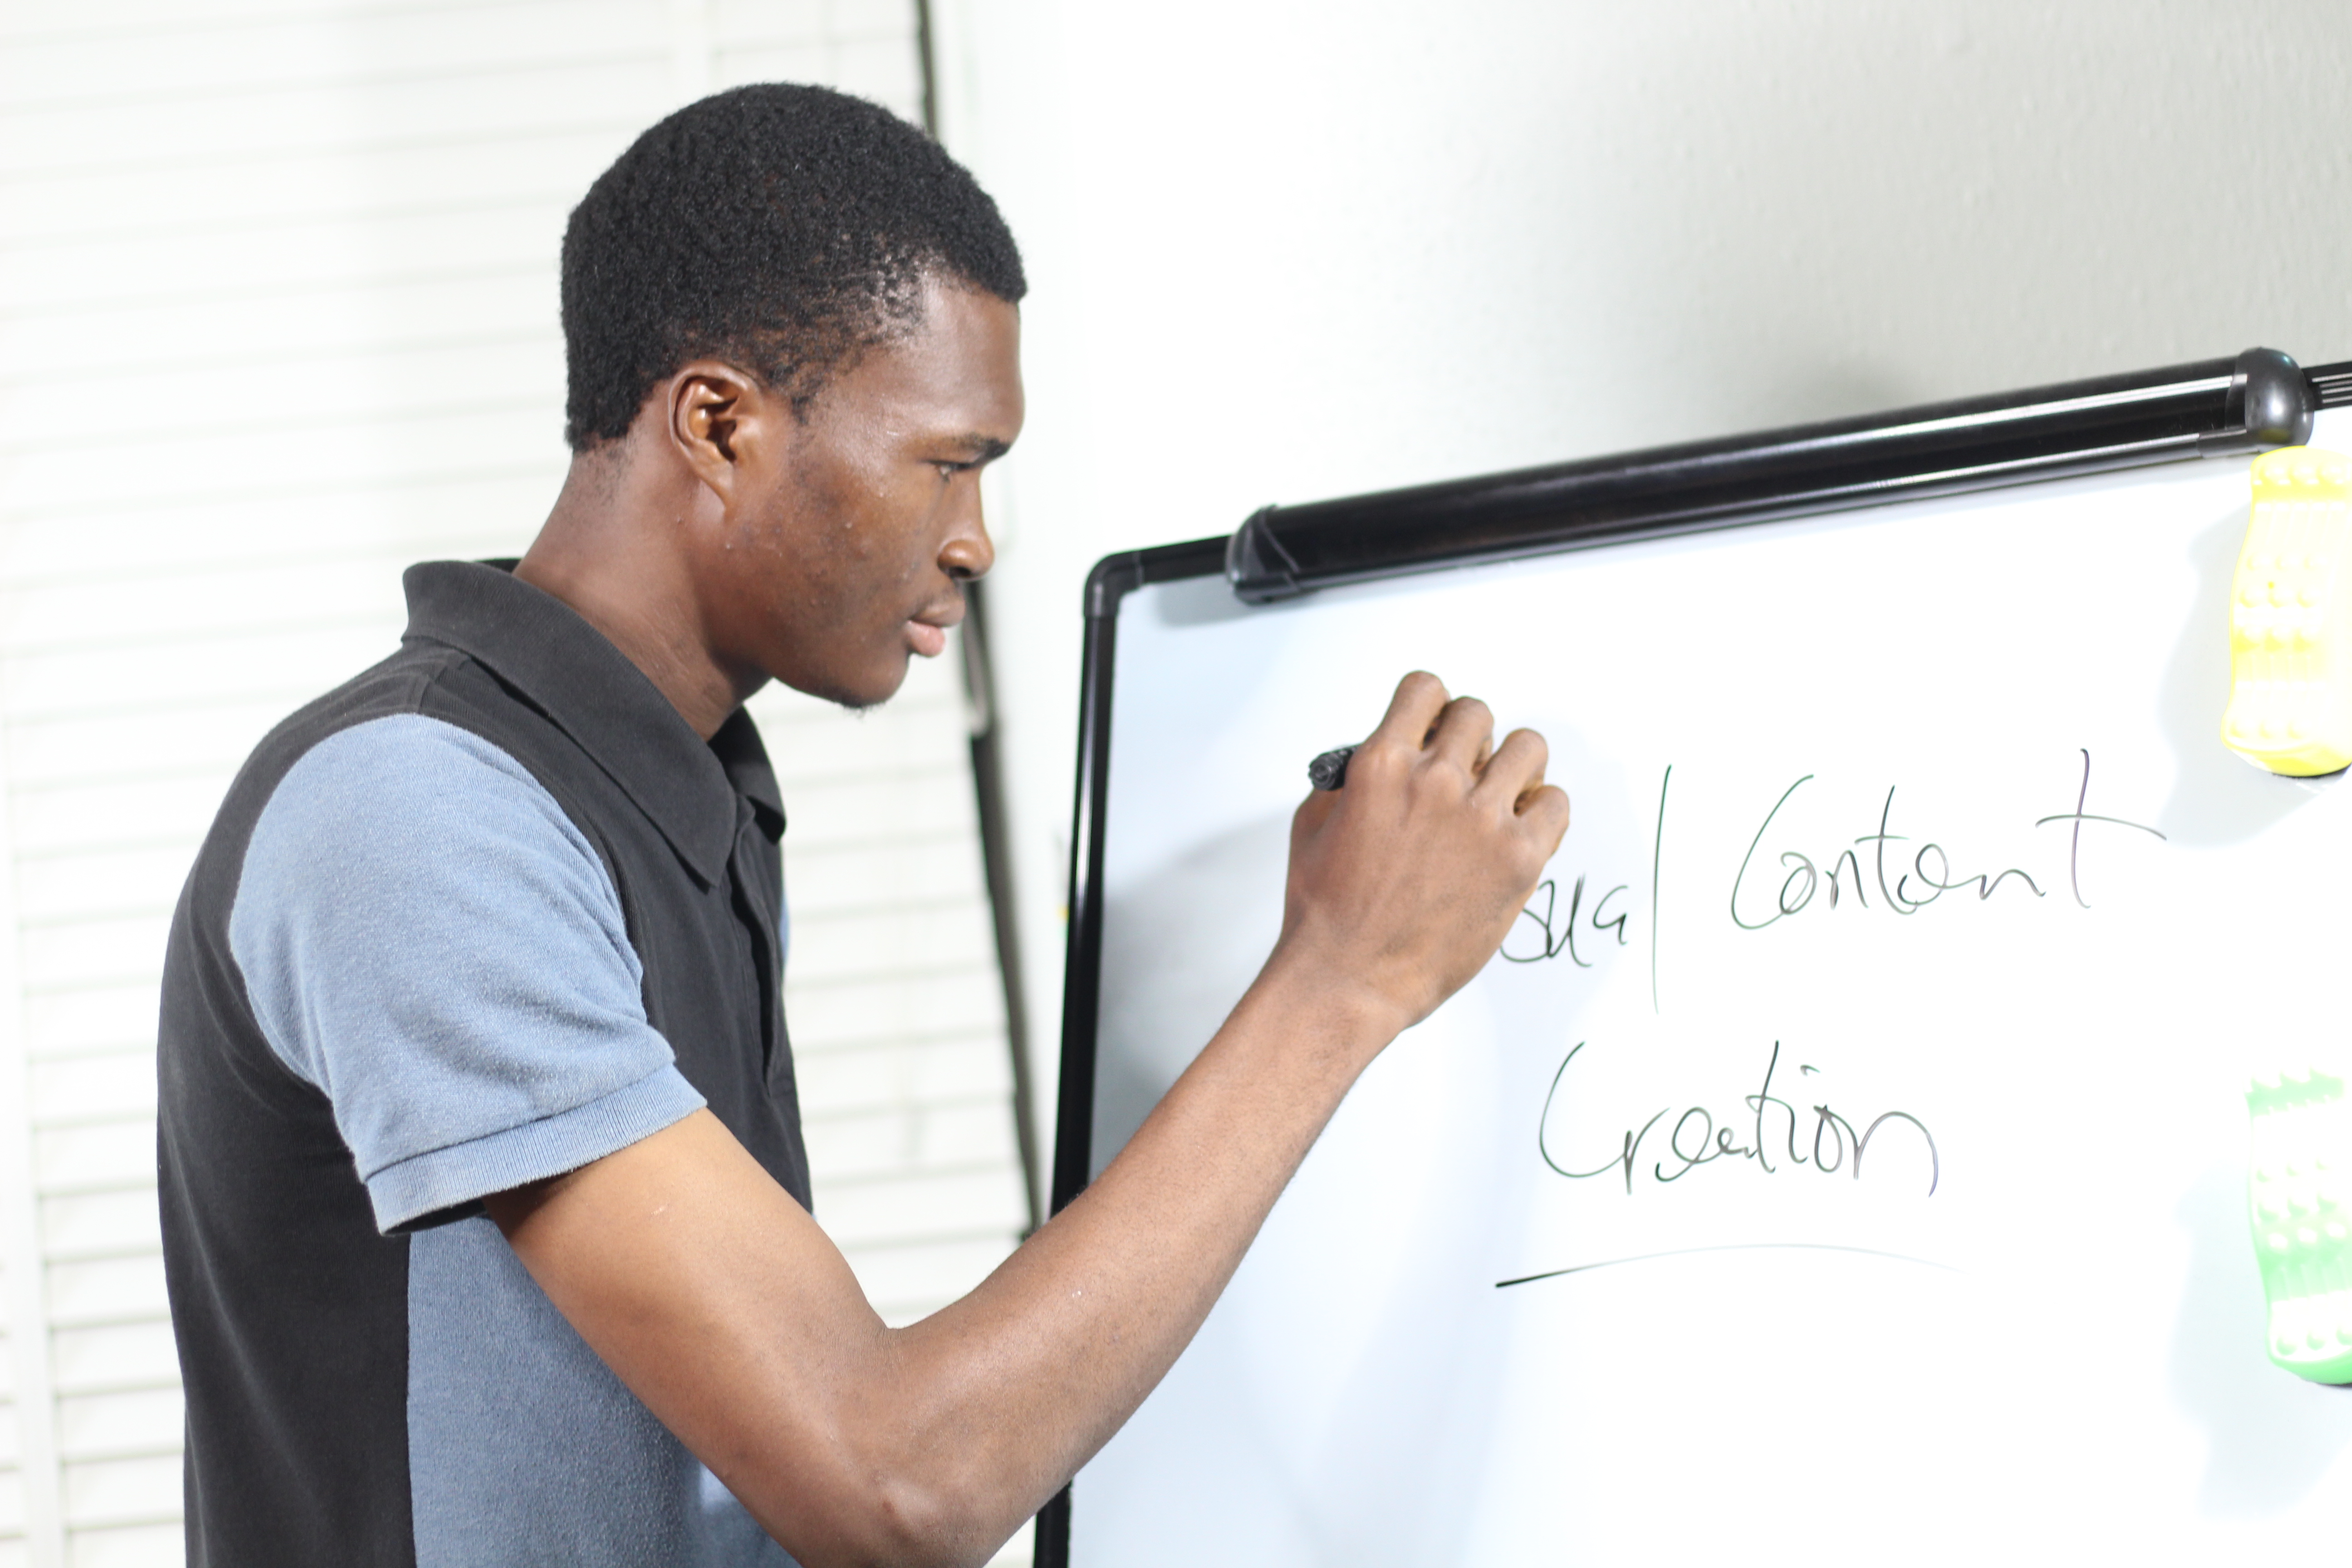 sual Content
Creation